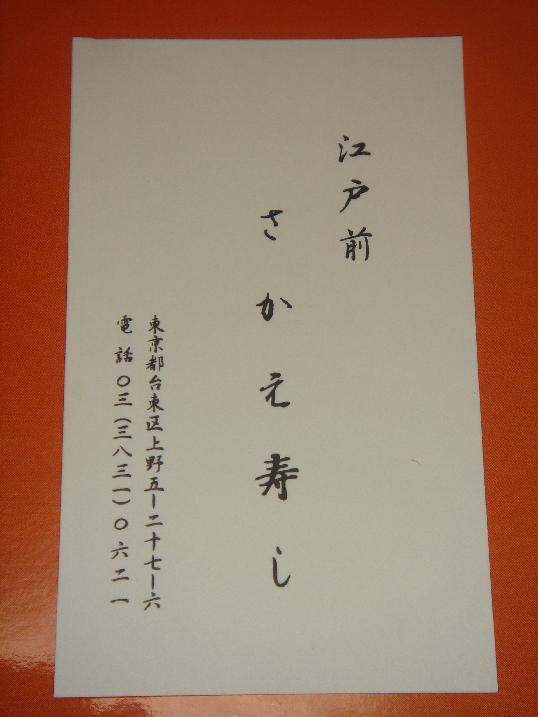 江戸前
さかえ寿し
東京都台東区上野五ー二十七ー六
電話〇三(三八三一)〇六二一